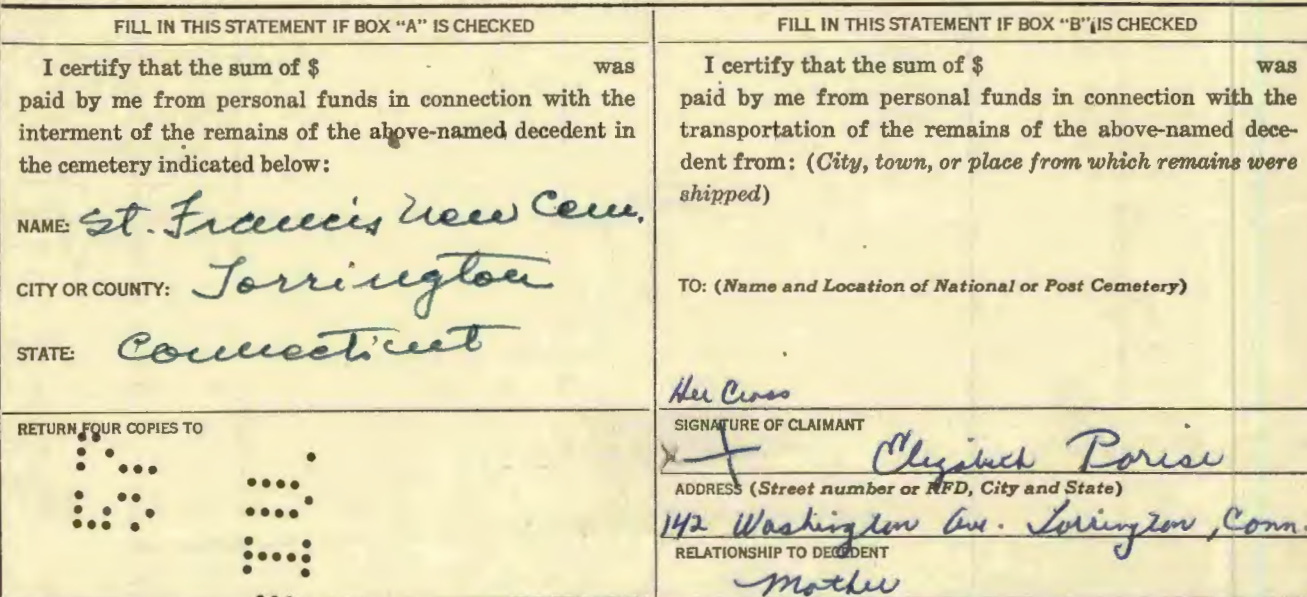 FILL IN THIS STATEMENT IF BOX "A" IS CHECKED
I certify that the sum of $ was
paid by me from personal funds in connection with the
interment of the remains of the above-named decedent in
the cemetery indicated below:
NAME: St. Francis New Cem.
CITY OR COUNTY: Torrington
STATE: Connecticut
RETURN FOUR COPIES TO
FILL IN THIS STATEMENT IF BOX "B" IS CHECKED
I certify that the sum of $ was
paid by me from personal funds in connection with the
transportation of the remains of the above-named dece-
dent from: (City, town, or place from which remains were
shipped)
TO: (Name and Location of National or Post Cemetery)
Her Cross
SIGNATURE OF CLAIMANT
X Elizabeth Parise
ADDRESS (Street number or RFD, City and State)
142 Washington Ave. Torrington, Conn.
RELATIONSHIP TO DECEDENT
Mother